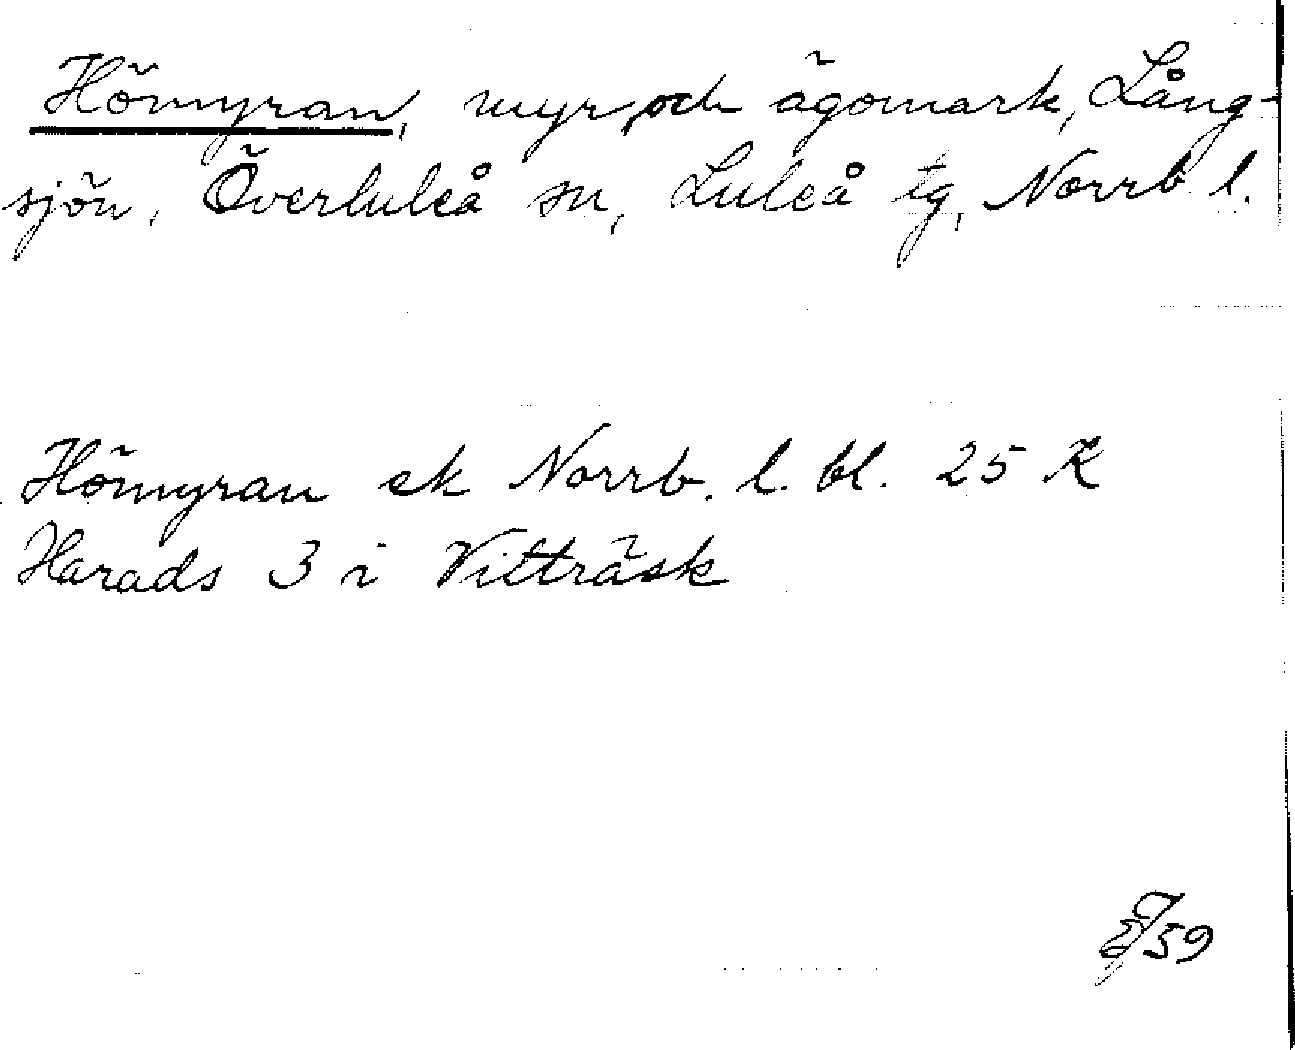 Hömyran, myr och ägomark, Lång-
sjön, Överluleå sn, Luleå tg, Norrb l.
Hömyran ek Norrb. l. bl. 25 K
Harads 3 i Vitträsk
/59